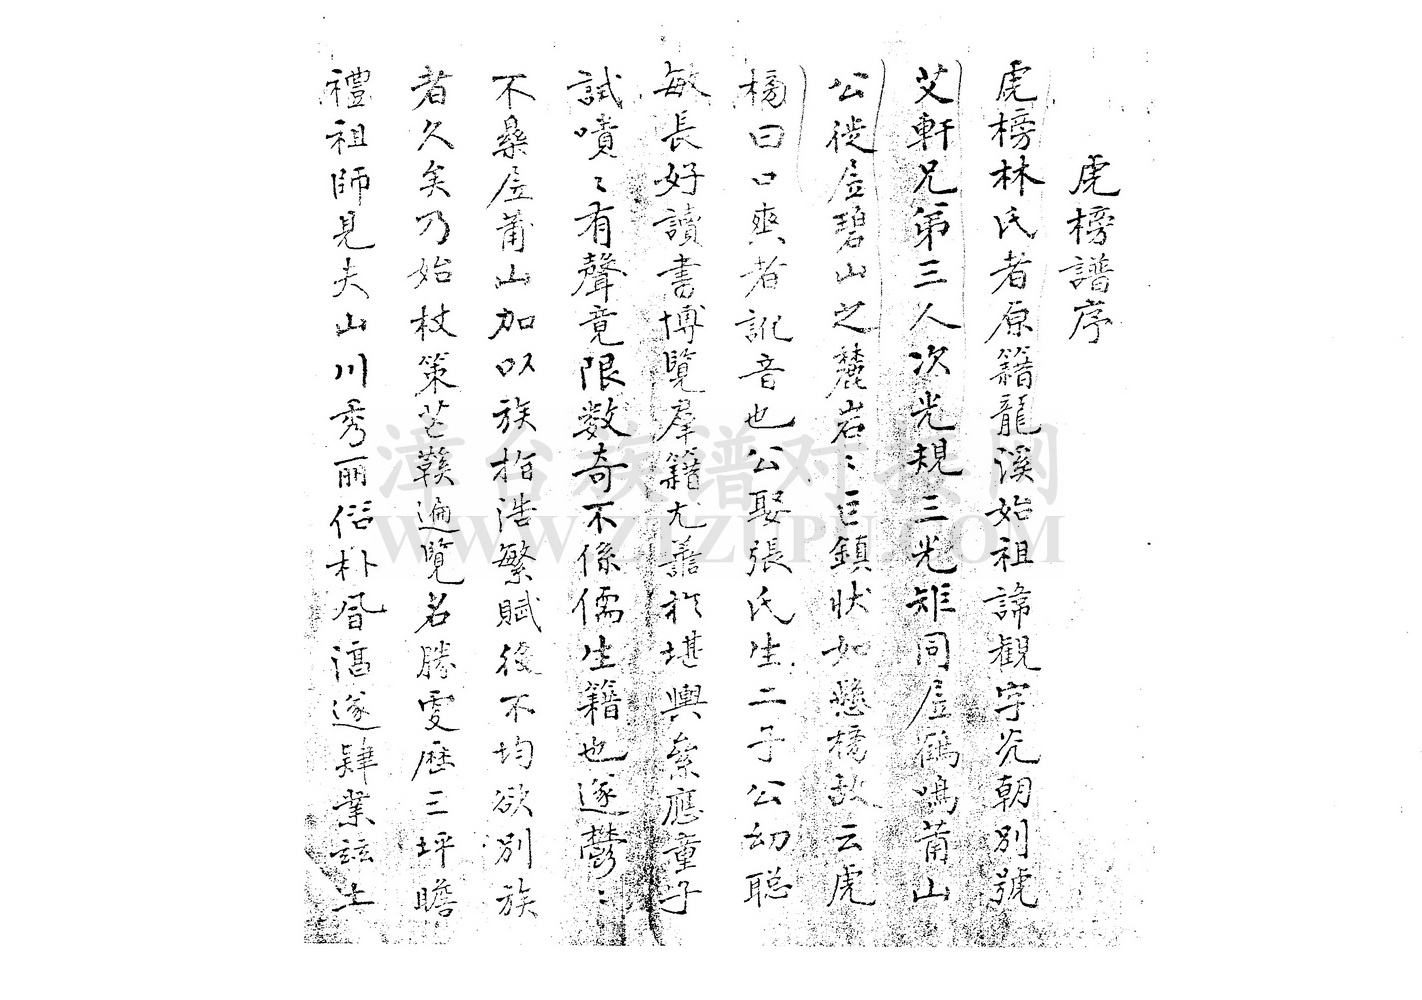 虎榜譜序
虎榜林氏者原籍龍溪始祖諱觀字光朝別號
艾軒兄第三人次光規三光矩同居鶴鳴莆山
公徙居碧山之麓岩〻巨鎮状如懸榜故云虎
榜曰口爽者訛音也公娶張氏生二子公幼聪
敏長好讀書博覽羣籍尤善於堪輿絫應童子
試嘖〻有聲竟限数竒不係儒生籍也遂鬱〻
不樂居莆山加以族指浩繁賦役不均欲別族
者久矣乃始杖策芒鞋遍覽名勝歷三坪瞻
禮祖師見夫山川秀丽俗朴風遂肄業兹土
漳台族谱对接网
WWW.ZTZUPU.COM